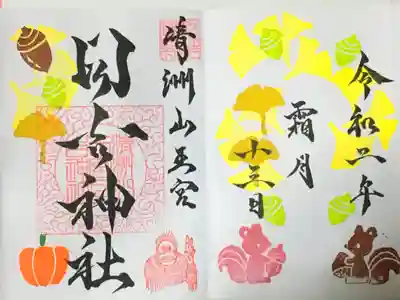 令和六年
霜月
十三日
清洲山王宮
日吉神社